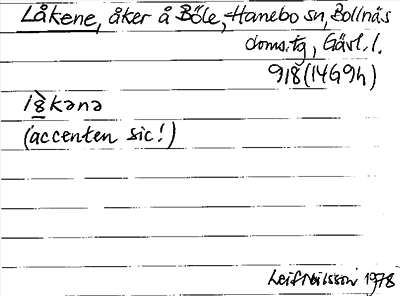 Låkene, åker å Böle, Hanebo sn, Bollnäs
doms.tg, Gävl.l.
918(14G9h)
lå̀kənə
(accenten sic!)
Leif Nilsson 1978